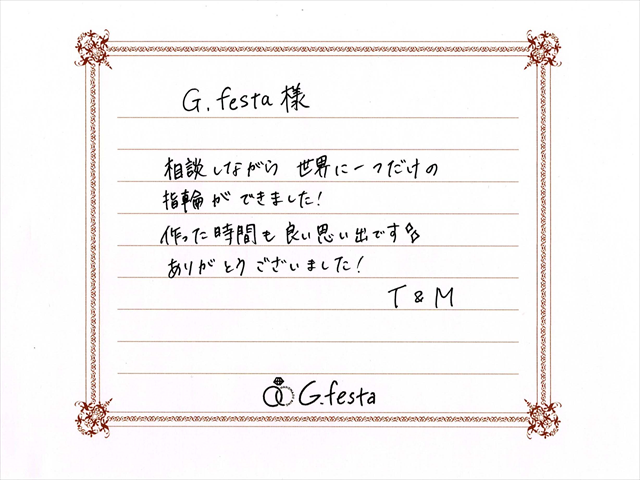 G.festa様
相談しながら 世界に一つだけの
指輪ができました!
作った時間も良い思い出です
ありがとうございました!
T & M
G.festa